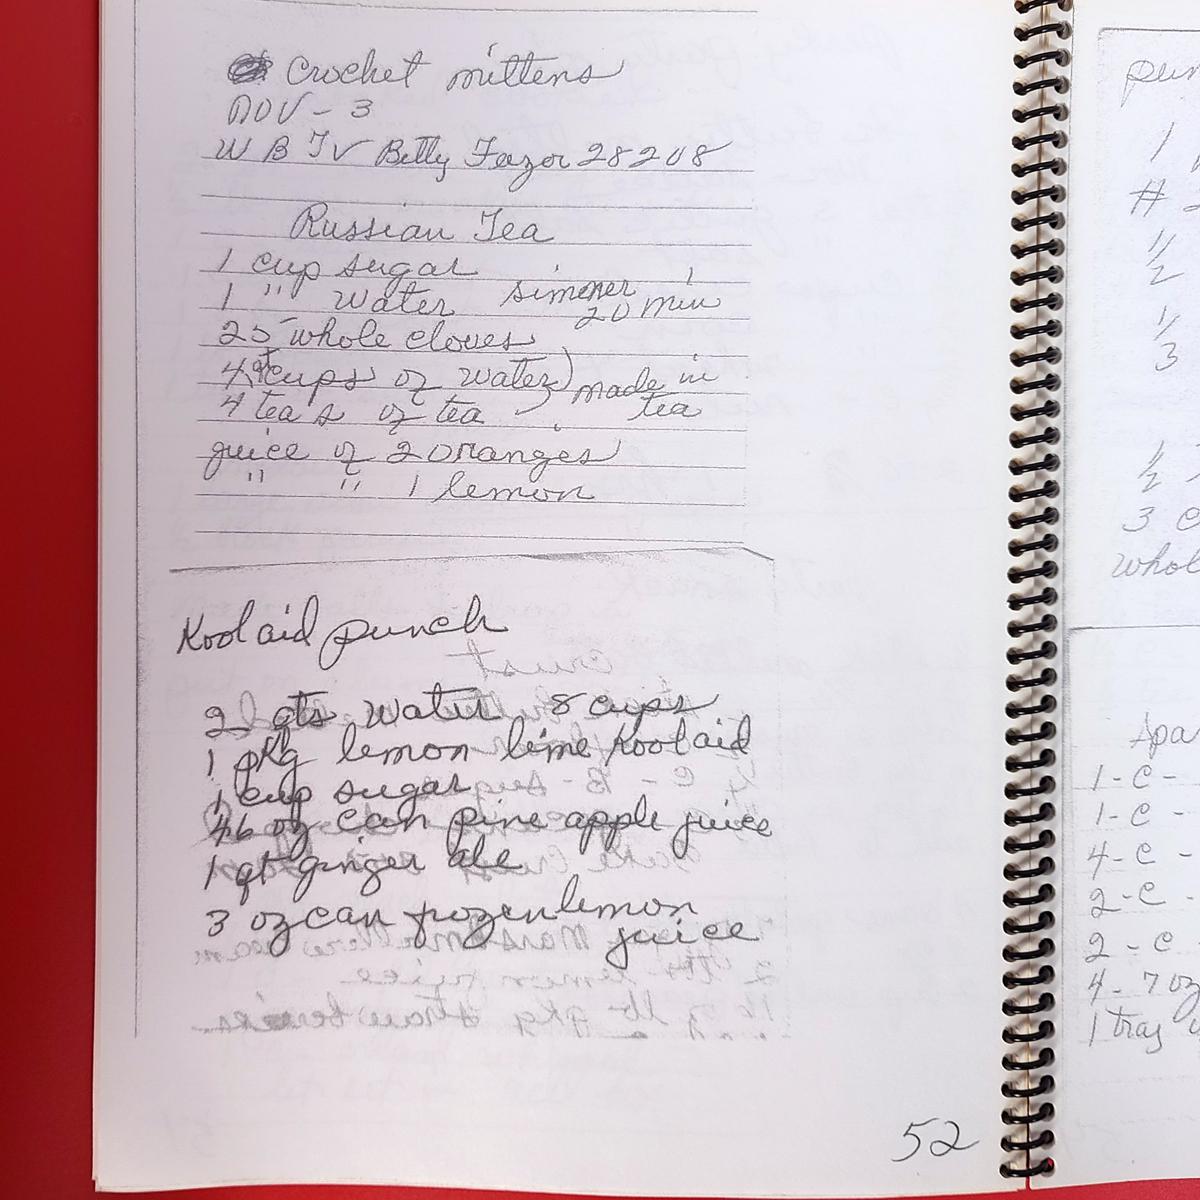 Crochet mittens
NOV - 3
W B T V Betty Feezor 28208
Russian Tea
1 cup sugar
1 " water simener 20 min
25 whole cloves
4 cups of water) made in
4 teas of tea tea
juice of 2 oranges
" " 1 lemon
Koolaid punch
2 qts water 8 cups
1 pkg lemon lime Koolaid
1 cup sugar
46 oz can pine apple juice
1 qt ginger ale
3 oz can frozen lemon
juice
52
pun
1
#
1/2
1/3
1/2
3 c
whol
1 - C -
1 - C -
4 - C -
2 - C -
2 - C
4 - 7 oz
1 tray